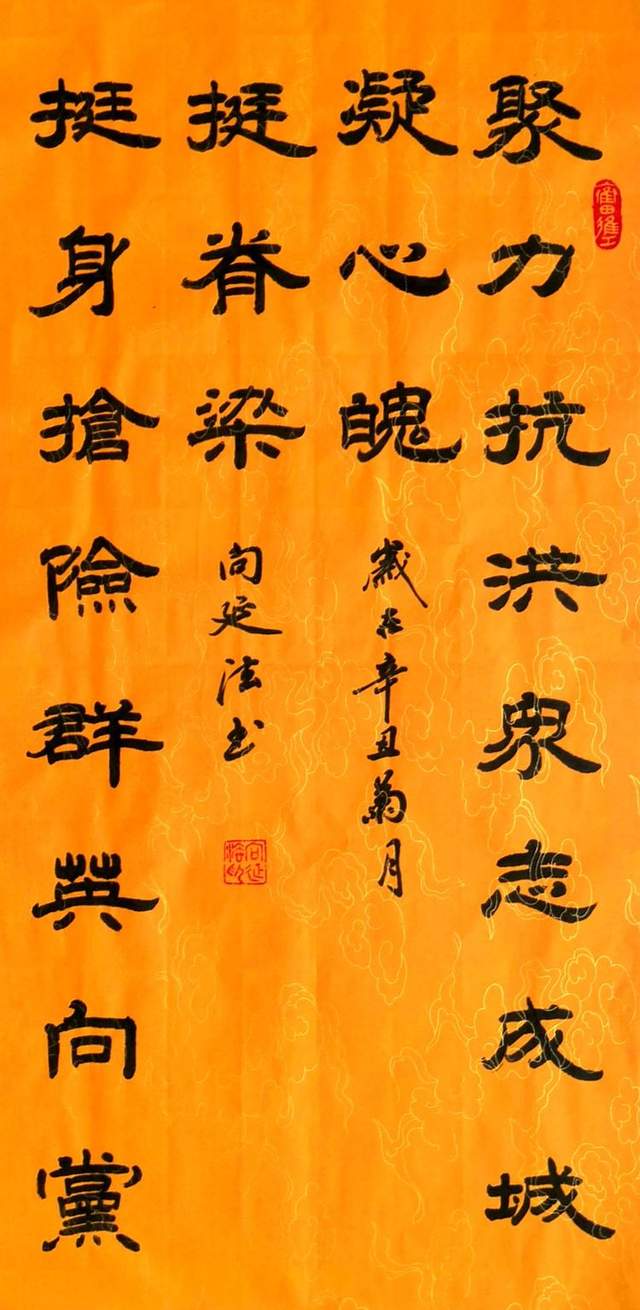 聚力抗洪眾志成城
凝心魄
歲在辛丑菊月
挺身搶險群英向黨
挺脊梁
向延法书